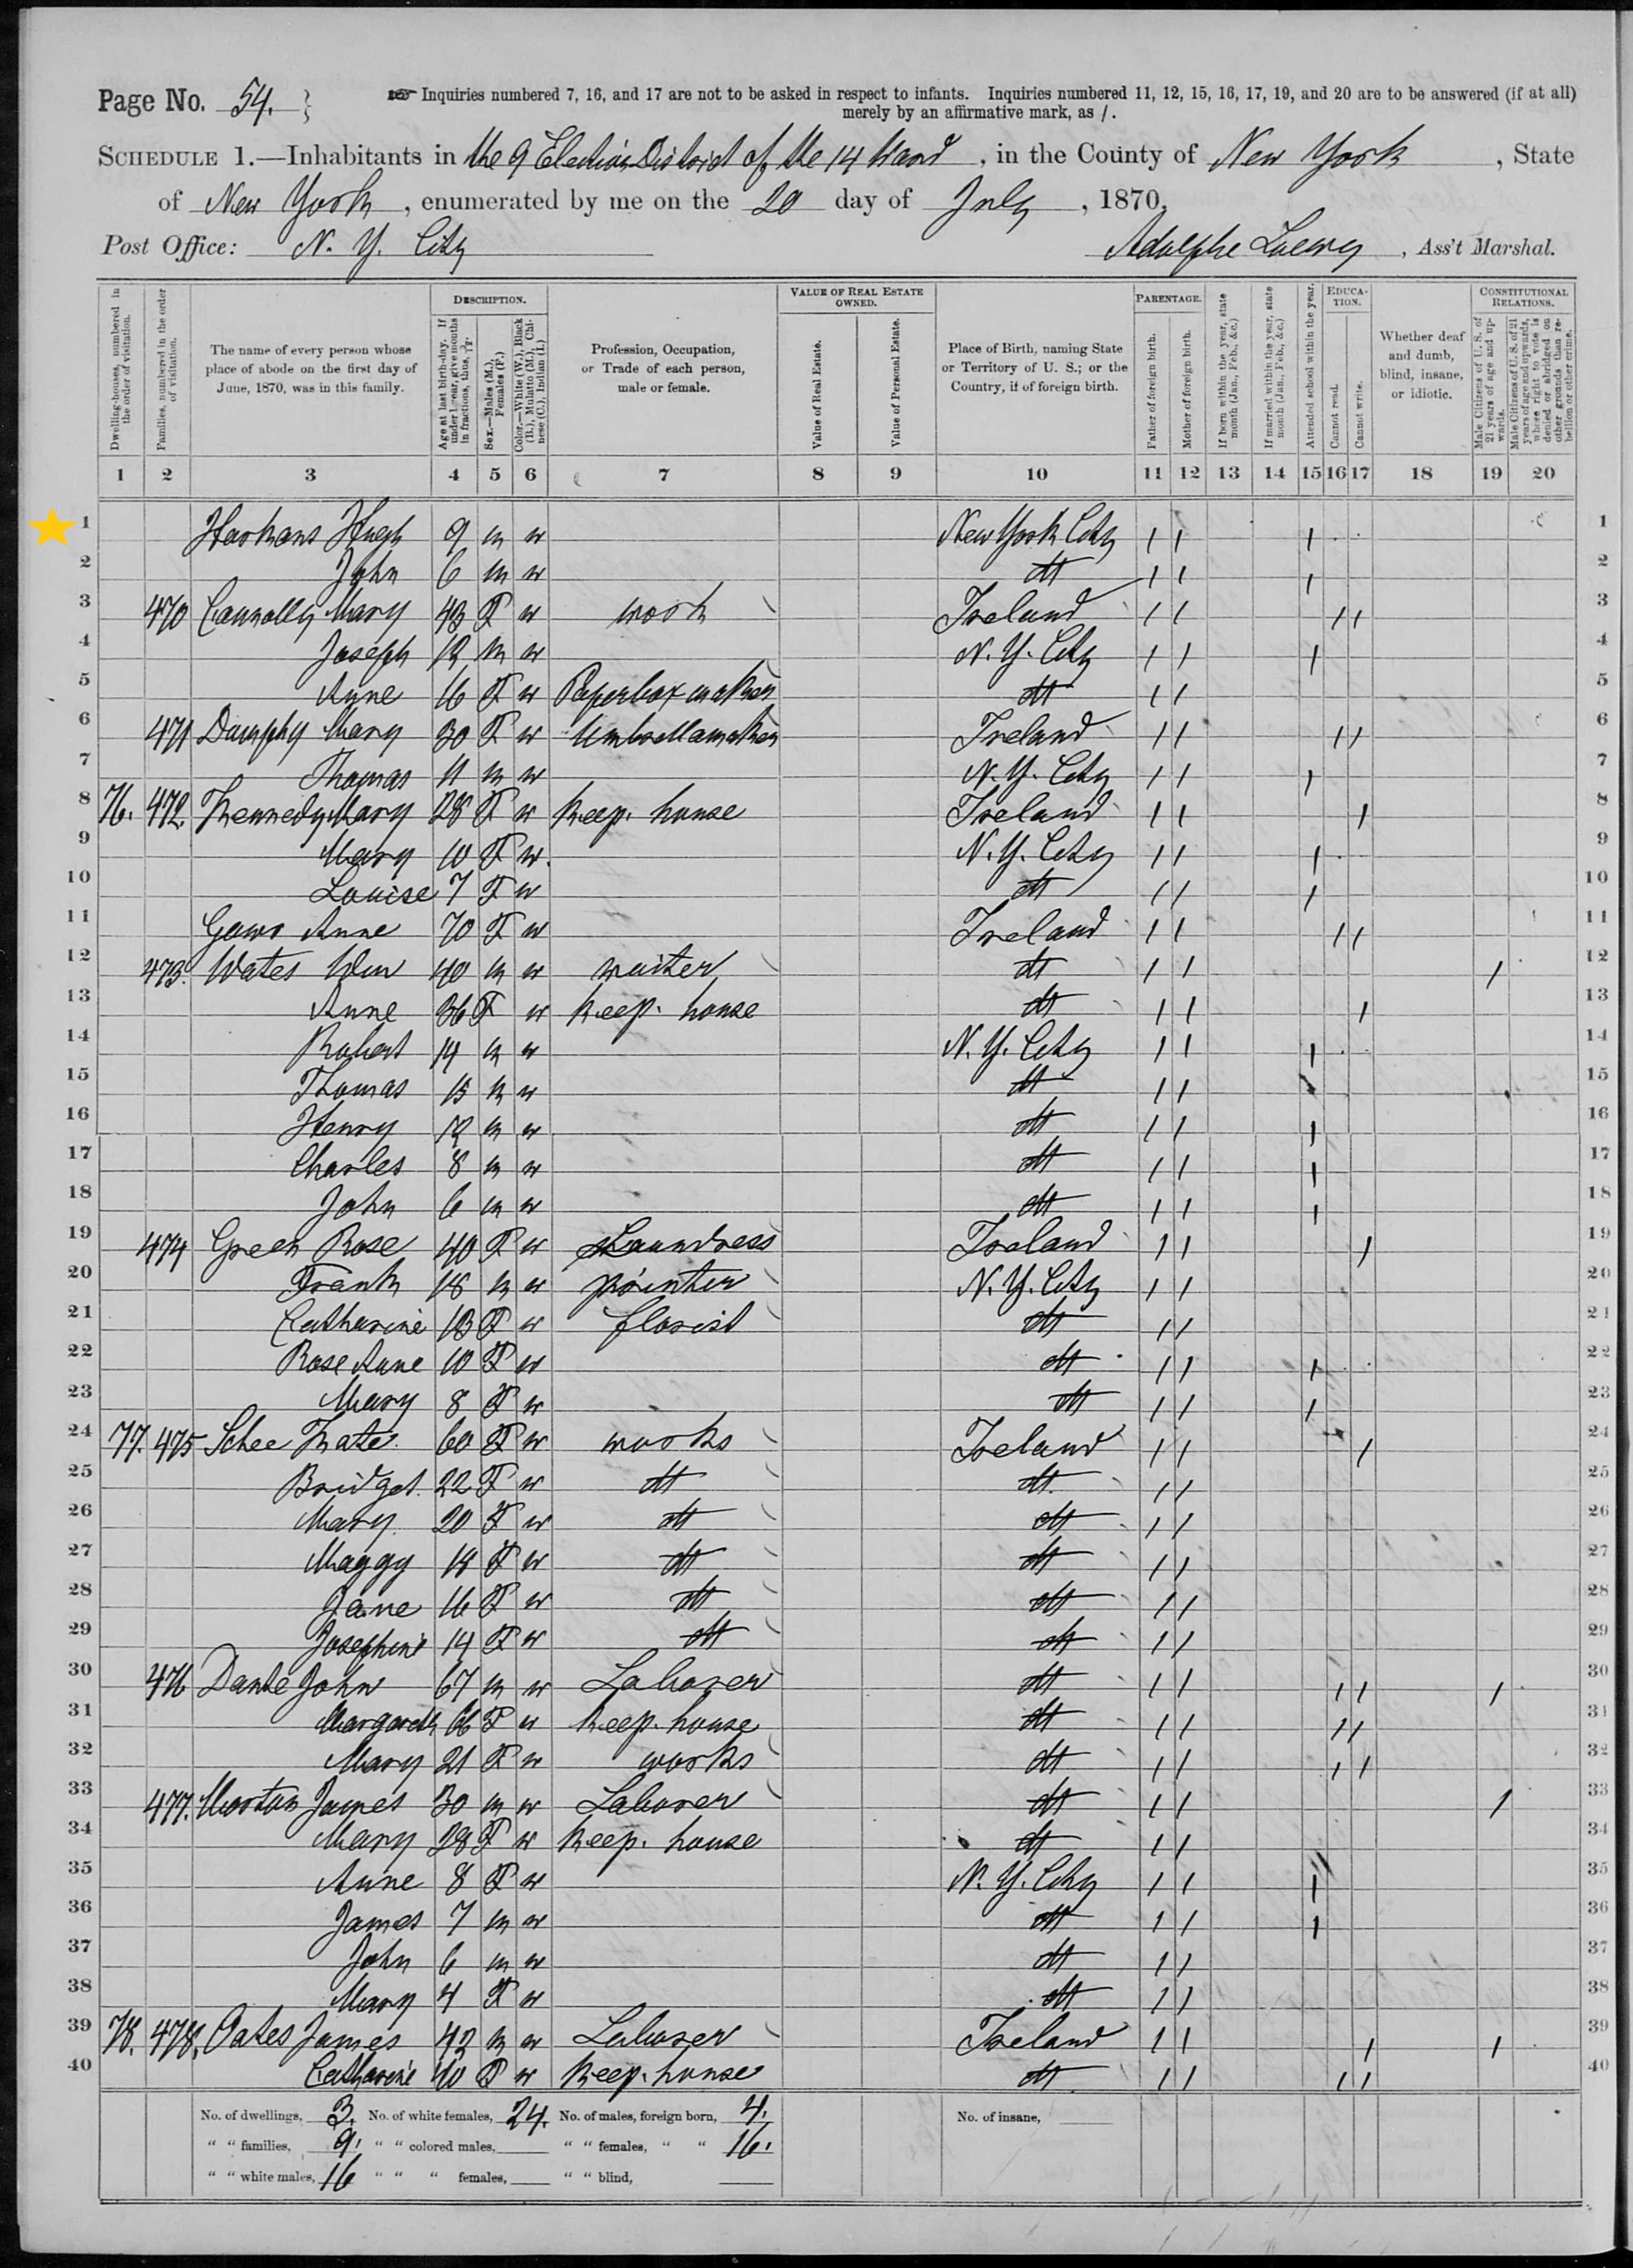 Page No. 54. Inquiries numbered 7, 16, and 17 are not to be asked in respect to infants. Inquiries numbered 11, 12, 15, 16, 17, 19, and 20 are to be answered (if at all)
merely by an affirmative mark, as /.
SCHEDULE 1.—Inhabitants in the 9 Election District of the 14 Ward, in the County of New York, State
of New York, enumerated by me on the 20 day of July, 1870.
Post Office: N. Y. City Adolphe Loewy, Ass't Marshal.
Dwelling-houses, numbered in the order of visitation.
Families, numbered in the order of visitation.
The name of every person whose place of abode on the first day of June, 1870, was in this family.
DESCRIPTION.
Age at last birth-day. If under 1 year, give months in fractions, thus, 3/12.
Sex.—Males (M.), Females (F.)
Color.—White (W.), Black (B.), Mulatto (M.), Chinese (C.), Indian (I.)
Profession, Occupation, or Trade of each person, male or female.
VALUE OF REAL ESTATE OWNED.
Value of Real Estate.
Value of Personal Estate.
Place of Birth, naming State or Territory of U. S.; or the Country, if of foreign birth.
PARENTAGE.
Father of foreign birth.
Mother of foreign birth.
If born within the year, state month (Jan., Feb., &c.)
If married within the year, state month (Jan., Feb., &c.)
Attended school within the year.
EDUCATION.
Cannot read.
Cannot write.
Whether deaf and dumb, blind, insane, or idiotic.
CONSTITUTIONAL RELATIONS.
Male Citizens of U. S. of 21 years of age and upwards.
Male Citizens of U. S. of 21 years of age and upwards, whose right to vote is denied or abridged on other grounds than rebellion or other crime.
1 2 3 4 5 6 7 8 9 10 11 12 13 14 15 16 17 18 19 20
1 Hugh 9 m w New York City / / / 1
2 John 6 m w dt / / / 2
3 470 Connolly Mary 43 F w work Ireland / / / / 3
4 Joseph 12 m w N. Y. City / / / 4
5 Anne 16 F w Paperbox maker dt / / 5
6 471 Mary 30 F w Umbrellamaker Ireland / / / / 6
7 Thomas 11 m w N. Y. City / / / 7
8 76. 472. Kennedy Mary 28 F w Keep. house Ireland / / / 8
9 Mary 10 F w. N. Y. City / / / 9
10 Louise 7 F w dt / / / 10
11 Anne 70 F w Ireland / / / / 11
12 473. Wates Wm 40 m w waiter dt / / / 12
13 Anne 36 F w Keep. house dt / / / 13
14 Robert 14 m w N. Y. City / / / 14
15 Thomas 13 m w dt / / / 15
16 Henry 12 m w dt / / / 16
17 Charles 8 m w dt / / / 17
18 John 6 m w dt / / / 18
19 474 Green Rose 40 F w Laundress Ireland / / / 19
20 Frank 18 m w printer N. Y. City / / 20
21 Catharine 13 F w florist dt / / 21
22 Rose Anne 10 F w dt / / / 22
23 Mary 8 F w dt / / / 23
24 77. 475 Schee Kate. 60 F w works Ireland / / / 24
25 Bridget. 22 F w dt dt. / / 25
26 Mary. 20 F w dt dt / / 26
27 Maggy 18 F w dt dt / / 27
28 Jane 16 F w dt dt / / 28
29 Josephine 14 F w dt dt / / 29
30 476 John 67 m w Laborer dt / / / / / 30
31 Margareth 66 F w Keep. house dt / / / / 31
32 Mary 21 F w works dt / / / / 32
33 477. Morton James 30 m w Laborer dt / / / 33
34 Mary 28 F w Keep. house dt / / 34
35 Anne 8 F w N. Y. City / / / 35
36 James 7 m w dt / / / 36
37 John 6 m w dt / / 37
38 Mary 4 F w dt / / 38
39 78. 478. Oates James 42 m w Laborer Ireland / / / / 39
40 Catharine 40 F w Keep. house dt / / / / 40
No. of dwellings, 3. No. of white females, 24. No. of males, foreign born, 4. No. of insane,
" " families, 9. " " colored males, " " females, " " 16.
" " white males, 16 " " " females, " " blind,